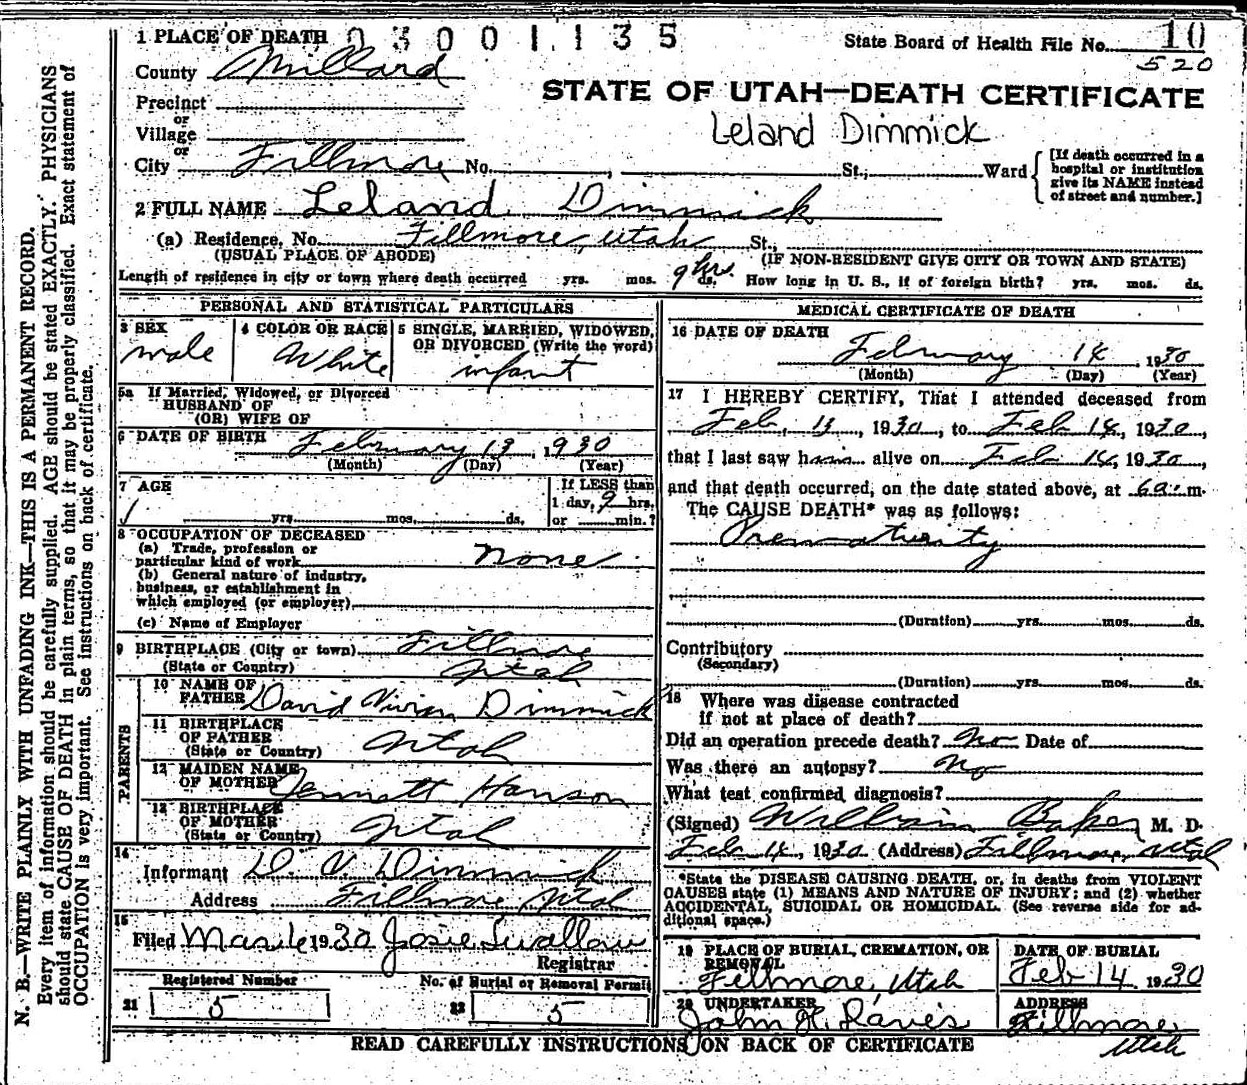 1 PLACE OF DEATH 03001135
State Board of Health File No. 10
520
County Millard
STATE OF UTAH—DEATH CERTIFICATE
Precinct
or
Village
Leland Dimmick
or
City Fillmore No. , St.; Ward
[If death occurred in a
hospital or institution
give its NAME instead
of street and number.]
2 FULL NAME Leland Dimmick
(a) Residence, No. Fillmore, Utah St.,
(USUAL PLACE OF ABODE) (IF NON-RESIDENT GIVE CITY OR TOWN AND STATE)
Length of residence in city or town where death occurred yrs. mos. 9 hrs. ds. How long in U. S., if of foreign birth? yrs. mos. ds.
PERSONAL AND STATISTICAL PARTICULARS
3 SEX
male
4 COLOR OR RACE
White
5 SINGLE, MARRIED, WIDOWED,
OR DIVORCED (Write the word)
infant
5a If Married, Widowed, or Divorced
HUSBAND OF
(OR) WIFE OF
6 DATE OF BIRTH February 13, 1930
(Month) (Day) (Year)
7 AGE
yrs. mos. ds.
If LESS than
1 day, 9 hrs.
or min.?
8 OCCUPATION OF DECEASED
(a) Trade, profession or
particular kind of work none
(b) General nature of industry,
business, or establishment in
which employed (or employer)
(c) Name of Employer
9 BIRTHPLACE (City or town) Fillmore
(State or Country) Utah
PARENTS
10 NAME OF
FATHER David Vivian Dimmick
11 BIRTHPLACE
OF FATHER
(State or Country) Utah
12 MAIDEN NAME
OF MOTHER Jennett Hanson
13 BIRTHPLACE
OF MOTHER
(State or Country) Utah
14
Informant D. V. Dimmick
Address Fillmore Utah
15
Filed Mar. 6 1930 Josie Swallow
Registrar
Registered Number
21 5
No. of Burial or Removal Permit
22 5
MEDICAL CERTIFICATE OF DEATH
16 DATE OF DEATH
February 14, 1930
(Month) (Day) (Year)
17 I HEREBY CERTIFY, That I attended deceased from
Feb. 13, 1930, to Feb 14, 1930,
that I last saw him alive on Feb 14, 1930
and that death occurred, on the date stated above, at 6 a. m.
The CAUSE DEATH* was as follows:
Prematurity
(Duration) yrs. mos. ds.
Contributory
(Secondary)
(Duration) yrs. mos. ds.
18 Where was disease contracted
if not at place of death?
Did an operation precede death? No Date of
Was there an autopsy? No
What test confirmed diagnosis?
(Signed) William Baker M. D.
Feb 14, 1930 (Address) Fillmore, Utah
*State the DISEASE CAUSING DEATH, or, in deaths from VIOLENT
CAUSES state (1) MEANS AND NATURE OF INJURY; and (2) whether
ACCIDENTAL, SUICIDAL OR HOMICIDAL. (See reverse side for ad-
ditional space.)
19 PLACE OF BURIAL, CREMATION, OR
REMOVAL
Fillmore, Utah
DATE OF BURIAL
Feb 14 1930
20 UNDERTAKER
John H. Davies
ADDRESS
Fillmore
Utah
READ CAREFULLY INSTRUCTIONS ON BACK OF CERTIFICATE
N. B.—WRITE PLAINLY WITH UNFADING INK—THIS IS A PERMANENT RECORD.
Every item of information should be carefully supplied. AGE should be stated EXACTLY. PHYSICIANS
should state CAUSE OF DEATH in plain terms, so that it may be properly classified. Exact statement of
OCCUPATION is very important. See instructions on back of certificate.